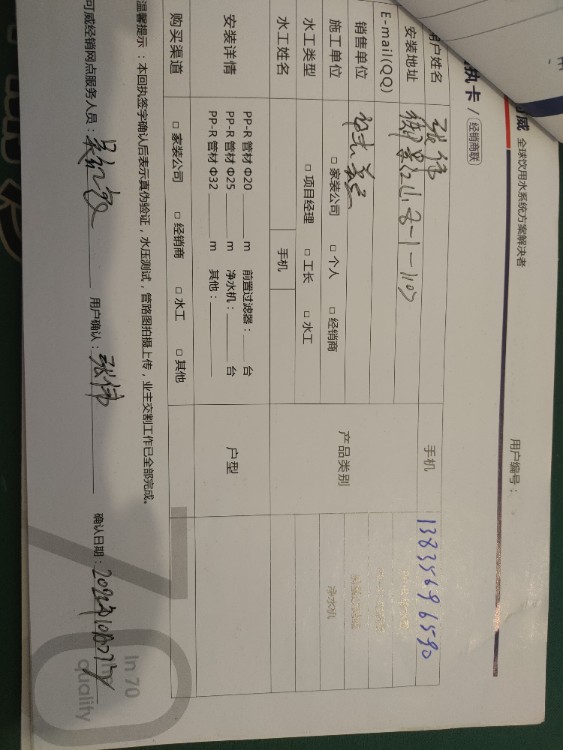 威 全球饮用水系统方案解决者
执卡 / 经销商联
用户编号：
用户姓名 张伟 手机 13835696590
安装地址 御景江山 8-1-1107
E-mail(QQ)
销售单位
产品类别
净水机
施工单位 □ 家装公司 □ 个人 □ 经销商
水工类型 □ 项目经理 □ 工长 □ 水工
水工姓名 手机
安装详情 PP-R 管材 Φ20 ____ m 前置过滤器：____ 台
PP-R 管材 Φ25 ____ m 净水机：____ 台
PP-R 管材 Φ32 ____ m 其他：____
户型
购买渠道 □ 家装公司 □ 经销商 □ 水工 □ 其他
温馨提示：本回执签字确认后表示真伪验证，水压测试，管路图拍摄上传，业主交割工作已全部完成。
可威经销网点服务人员： 用户确认：张伟 确认日期：
70
In 70
quality